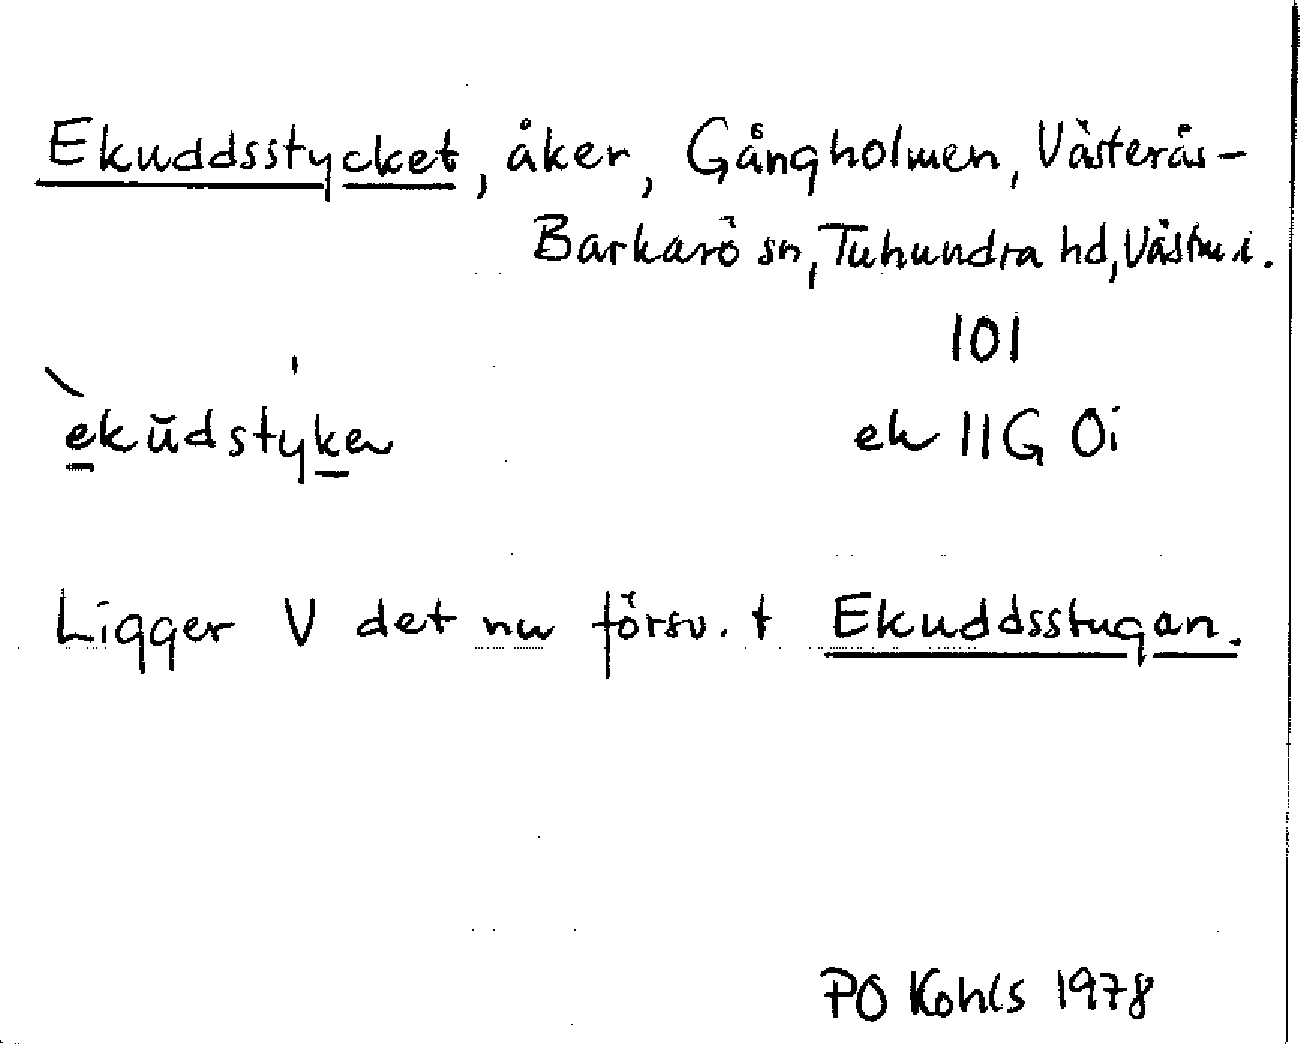 Ekuddsstycket, åker, Gångholmen, Västerås-
Barkarö sn, Tuhundra hd, Västm.
101
ekŭdstyken
ek 11G 0i
Ligger V det nu försv. t Ekuddsstugan.
PO Kohls 1978